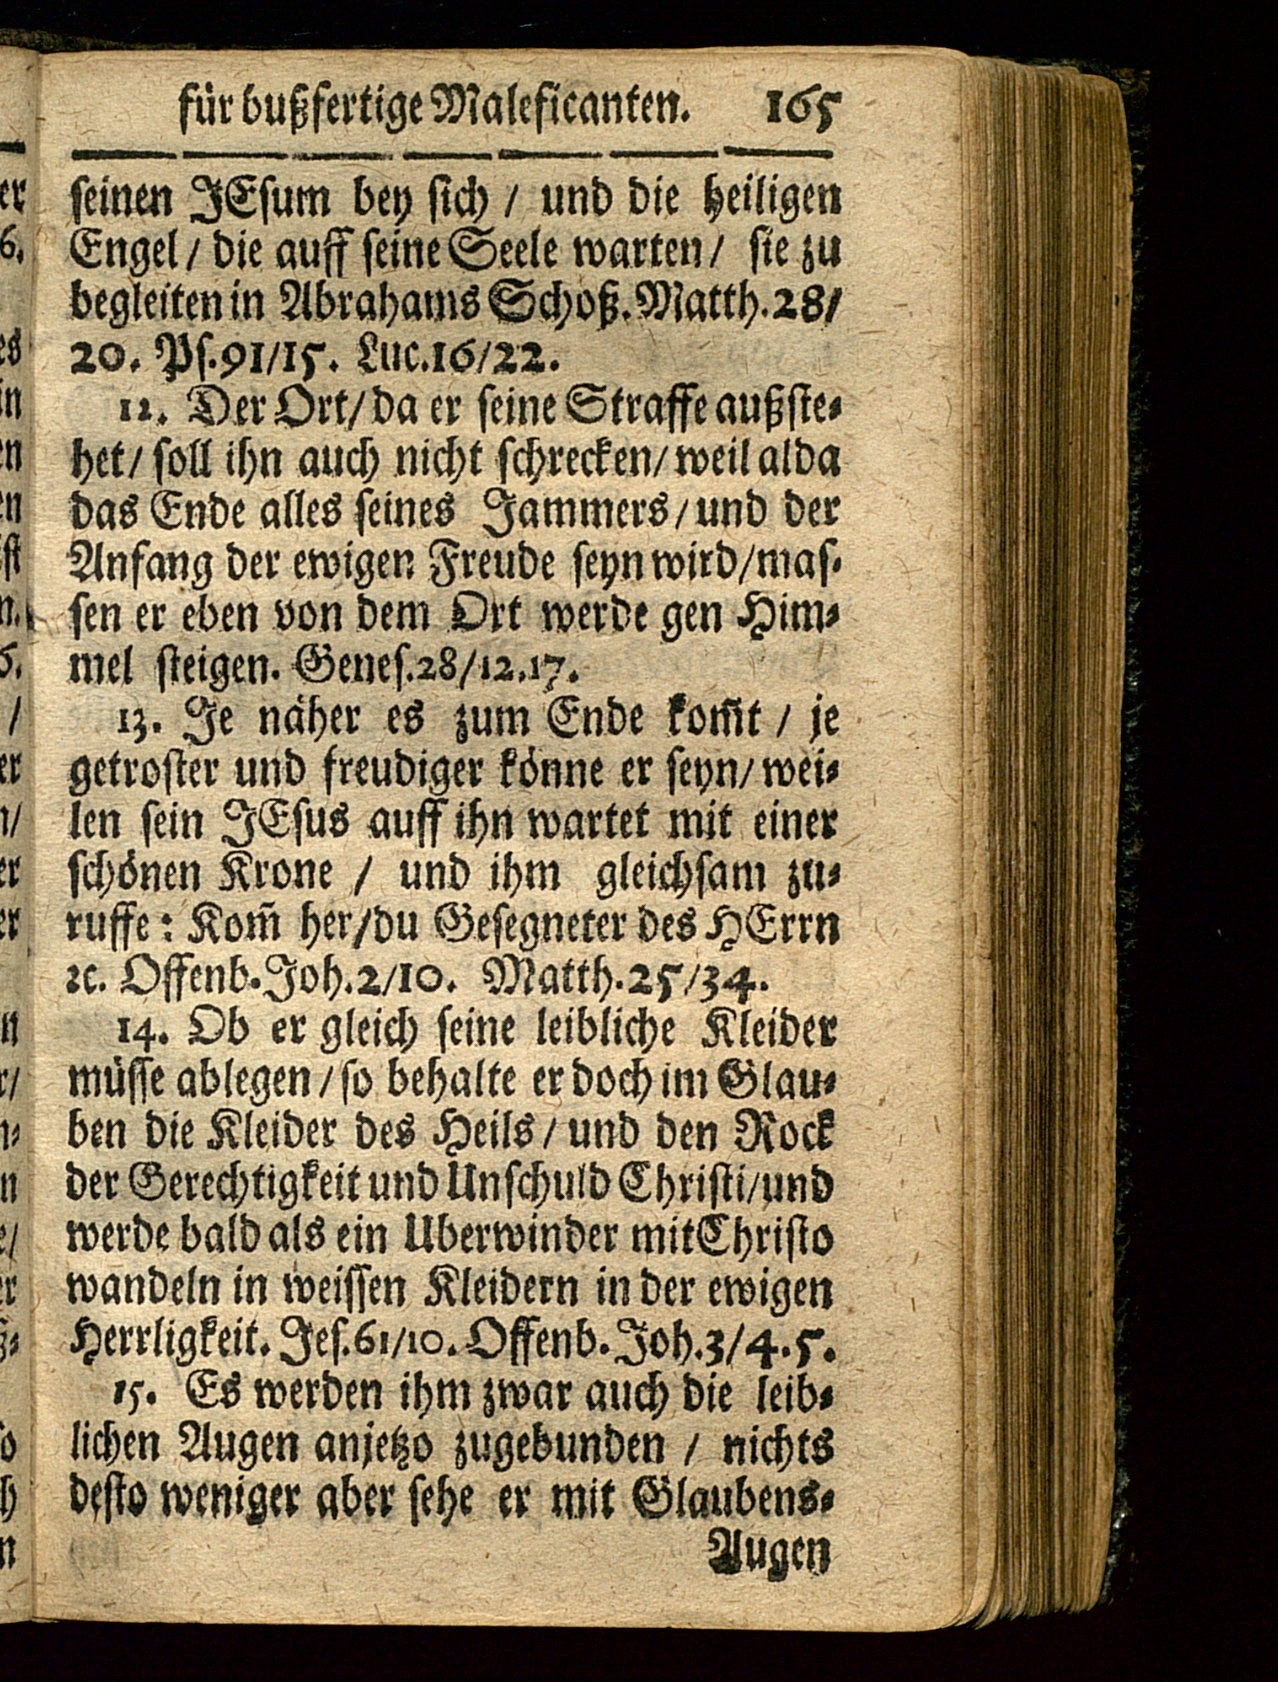 für bußfertige Maleficanten. 165
seinen JEsum bey sich / und die heiligen
Engel / die auff seine Seele warten / sie zu
begleiten in Abrahams Schoß. Matth. 28/
20. Ps. 91/15. Luc. 16/22.
12. Der Ort / da er seine Straffe außste-
het / soll ihn auch nicht schrecken / weil alda
das Ende alles seines Jammers / und der
Anfang der ewigen Freude seyn wird / mas-
sen er eben von dem Ort werde gen Him-
mel steigen. Genes. 28/12.17.
13. Je näher es zum Ende kom̃t / je
getroster und freudiger könne er seyn / wei-
len sein JEsus auff ihn wartet mit einer
schönen Krone / und ihm gleichsam zu-
ruffe: Kom̃ her / du Gesegneter des HErrn
ꝛc. Offenb. Joh. 2/10. Matth. 25/34.
14. Ob er gleich seine leibliche Kleider
müsse ablegen / so behalte er doch im Glau-
ben die Kleider des Heils / und den Rock
der Gerechtigkeit und Unschuld Christi / und
werde bald als ein Uberwinder mit Christo
wandeln in weissen Kleidern in der ewigen
Herrligkeit. Jes. 61/10. Offenb. Joh. 3/4.5.
15. Es werden ihm zwar auch die leib-
lichen Augen anjetzo zugebunden / nichts
desto weniger aber sehe er mit Glaubens-
Augen